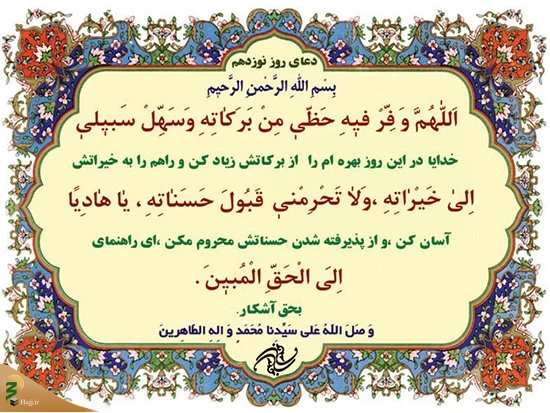 دعای روز نوزدهم
بِسْمِ اللهِ الرَّحْمنِ الرَّحیمِ
اَللّهُمَّ وَفِّرْ فیهِ حَظّی مِنْ بَرَکاتِهِ وَسَهِّلْ سَبیلی
خدایا در این روز بهره ام را از برکاتش زیاد کن و راهم را به خیراتش
اِلیٰ خَیْراتِهِ ،وَلا تَحْرِمْنی قَبُولَ حَسَناتِهِ ، یا هادِیًا
آسان کن ،و از پذیرفته شدن حسناتش محروم مکن ،ای راهنمای
اِلیَ الْحَقِّ الْمُبینَ .
بحق آشکار.
وَ صَلَ اللهُ عَلی سَیِّدِنا مُحَمَدٍ وَ الِهِ الطّاهِرینَ
Hajj.ir